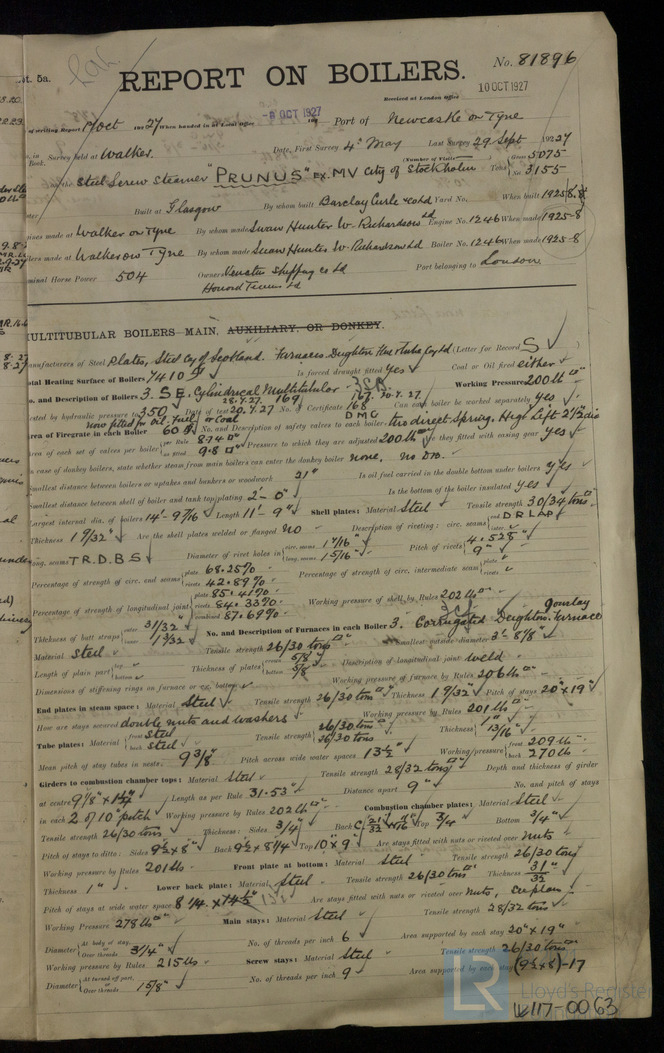 pt. 5a.
REPORT ON BOILERS.
No. 81896
Received at London Office 10 OCT 1927
of writing Report 1st Oct 1927 When handed in at Local Office -8 OCT 1927 Port of Newcastle on Tyne
Survey held at Walker. Date, First Survey 4th May Last Survey 29 Sept 1927
(Number of Visits) Gross 5075
the Steel Screw Steamer "PRUNUS" ex. MV City of Stockholm Tons Net 3155
Built at Glasgow By whom built Barclay Curle & Co Ltd Yard No. When built 1925-8
made at Walker on Tyne By whom made Swan Hunter W. Richardson Ltd Engine No. 1246 When made 1925-8
made at Walker on Tyne By whom made Swan Hunter W. Richardson Ltd Boiler No. 1246 When made 1925-8
Nominal Horse Power 504 Owners Venetus Shipping Co Ltd Port belonging to London
MULTITUBULAR BOILERS MAIN, AUXILIARY, OR DONKEY.
Manufacturers of Steel Plates, Steel Coy of Scotland. Furnaces Deighton Flue & Tube Coy Ltd (Letter for Record S)
Total Heating Surface of Boilers 7410 Is forced draught fitted Yes Coal or Oil fired either
No. and Description of Boilers 3. S.E. Cylindrical Multitubular Working Pressure 200 lb
Tested by hydraulic pressure to 350 Date of test 20.4.27 No. of Certificate 168 Can each boiler be worked separately yes
28.4.27 169 167. 30.4.27
now fitted for Oil, Fuel, or Coal DMC
Area of Firegrate in each Boiler 60 No. and Description of safety valves to each boiler two direct Spring. High Lift 2 1/2 dia
Area of each set of valves per boiler per Rule 8.74 as fitted 9.8 Pressure to which they are adjusted 200 lb Are they fitted with easing gear yes
In case of donkey boilers, state whether steam from main boilers can enter the donkey boiler none. no DB.
Smallest distance between boilers or uptakes and bunkers or woodwork 21" Is oil fuel carried in the double bottom under boilers yes
Smallest distance between shell of boiler and tank top plating 2'-0" Is the bottom of the boiler insulated yes
Largest internal dia. of boilers 14'-9 7/16 Length 11'-9" Shell plates: Material Steel Tensile strength 30/34 tons
Thickness 1 9/32 Are the shell plates welded or flanged no Description of riveting: circ. seams end D R LAP
long. seams T.R.D.B.S Diameter of rivet holes in circ. seams 1 7/16" long. seams 1 5/16" Pitch of rivets 4.528" 9"
Percentage of strength of circ. end seams plate 68.25% rivets 42.89% Percentage of strength of circ. intermediate seam plate rivets
Percentage of strength of longitudinal joint plate 85.41% rivets 84.33% combined 87.69% Working pressure of shell by Rules 202 lb
Thickness of butt straps outer 31/32" inner 1 3/32" No. and Description of Furnaces in each Boiler 3. Corrugated Deighton. Gourlay Furnace
Material Steel Tensile strength 26/30 tons Smallest outside diameter 3'-8 1/8"
Length of plain part top bottom Thickness of plates crown 5/8" bottom 5/8" Description of longitudinal joint weld
Dimensions of stiffening rings on furnace or c.c. bottom Working pressure of furnace by Rules 206 lb
End plates in steam space: Material Steel Tensile strength 26/30 tons Thickness 1 9/32 Pitch of stays 20" x 19"
How are stays secured double nuts and washers Working pressure by Rules 201 lb
Tube plates: Material front Steel back Steel Tensile strength 26/30 tons 26/30 tons Thickness 1" 13/16"
Mean pitch of stay tubes in nests 9 3/8" Pitch across wide water spaces 13 1/2" Working pressure front 209 lb back 270 lb
Girders to combustion chamber tops: Material Steel Tensile strength 28/32 tons Depth and thickness of girder
at centre 9 1/8" x 1 3/4" Length as per Rule 31.53" Distance apart 9" No. and pitch of stays
in each 2 of 10" pitch Working pressure by Rules 202 lb Combustion chamber plates: Material Steel
Tensile strength 26/30 tons Thickness: Sides 3/4" Top 3/4 Bottom 3/4"
Pitch of stays to ditto: Sides 9 1/2 x 8" Back 9 1/2 x 8 1/4 Top 10" x 9" Are stays fitted with nuts or riveted over nuts
Working pressure by Rules 201 lb Front plate at bottom: Material Steel Tensile strength 26/30 tons
Thickness 1" Lower back plate: Material Steel Tensile strength 26/30 tons Thickness 31/32"
Pitch of stays at wide water space 8 1/4 x 14 1/2" Are stays fitted with nuts or riveted over nuts,
Working Pressure 278 lb Main stays: Material Steel Tensile strength 28/32 tons
Diameter At body of stay, or Over threads 3 1/4" No. of threads per inch 6 Area supported by each stay 20" x 19"
Working pressure by Rules 215 lb Screw stays: Material Steel Tensile strength 26/30 tons
Diameter At turned off part, or Over threads 1 5/8" No. of threads per inch 9 Area supported by each stay (9 1/2 x 8) -17
LR Lloyd's Register
W117-0063